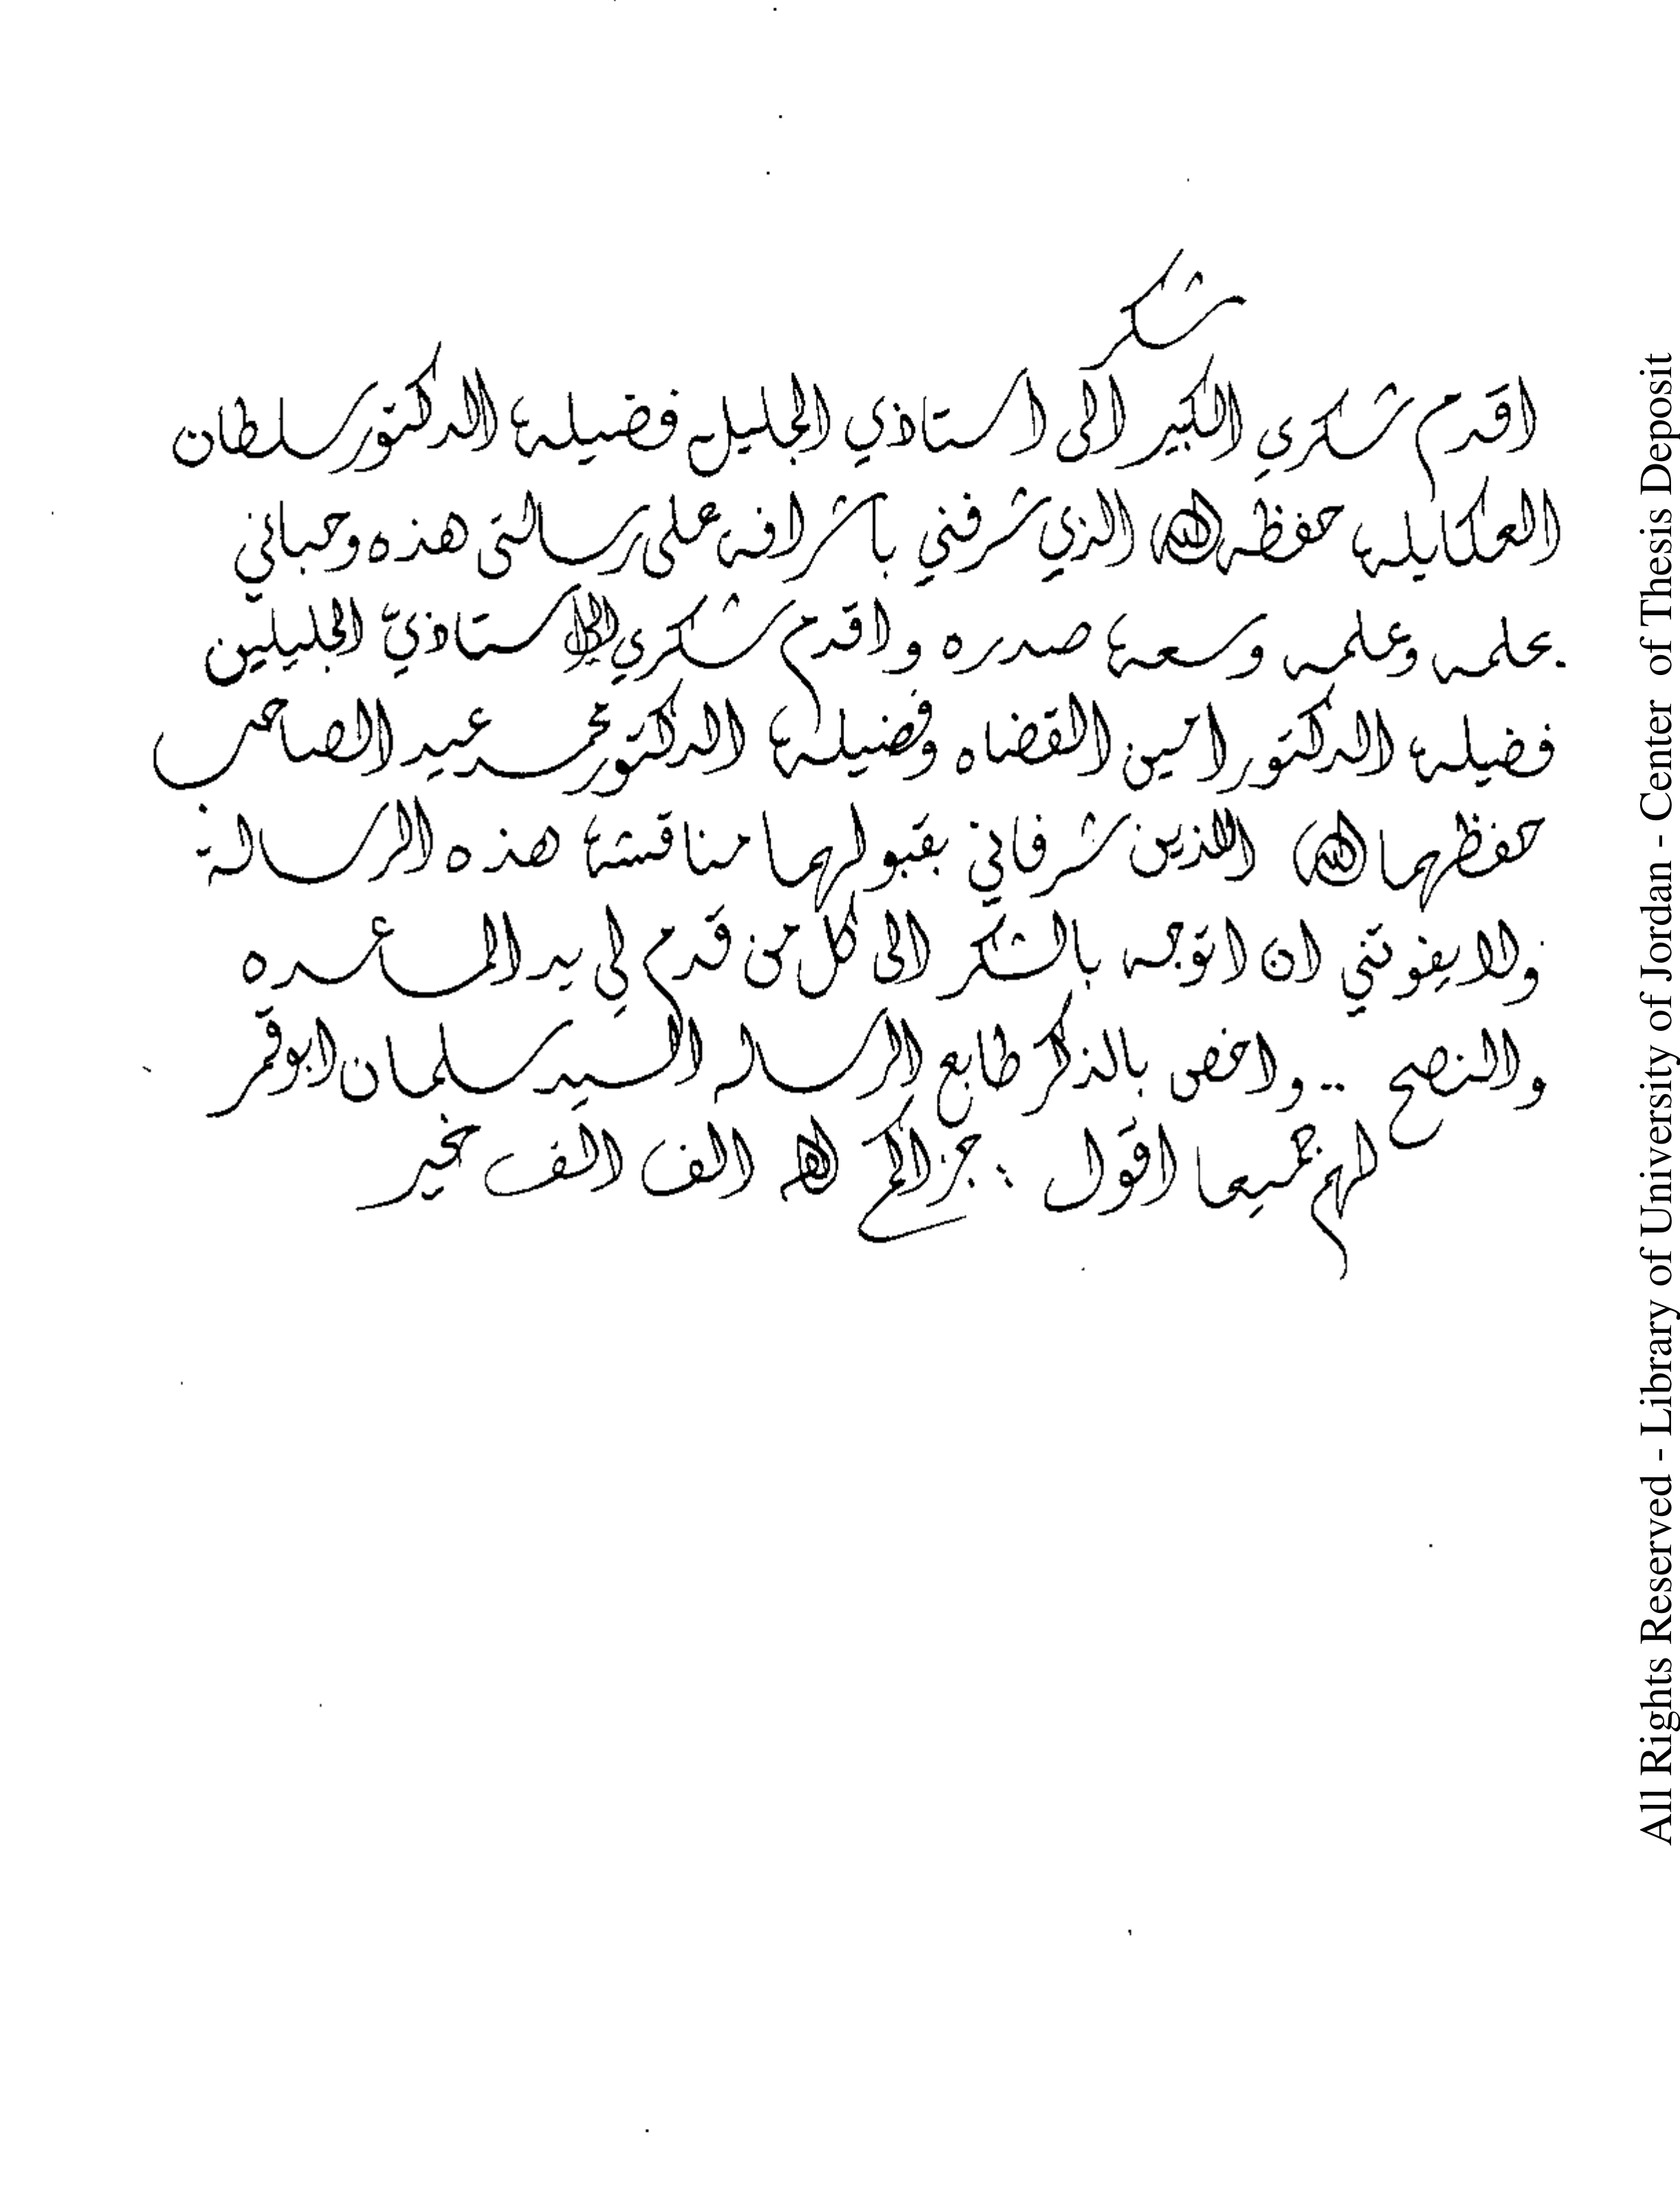 شكر
اقدم شكري الكبير الى استاذي الجليل فضيلة الدكتور سلطان
العكايلة حفظه الله الذي شرفني باشرافه على رسالتي هذه وحباني
بحلمه وعلمه وسعة صدره واقدم شكري الى استاذيّ الجليلين
فضيلة الدكتور امين القضاه وفضيلة الدكتور محمد عيد الصاحب
حفظهما الله اللذين شرفاني بقبولهما مناقشة هذه الرسالة
ولا يفوتني ان اتوجه بالشكر الى كل من قدم لي يد المساعده
والنصح .. واخص بالذكر طابع الرساله السيد سلمان ابوقمر
لهم جميعا اقول : جزاكم الله الف الف خير
All Rights Reserved - Library of University of Jordan - Center of Thesis Deposit